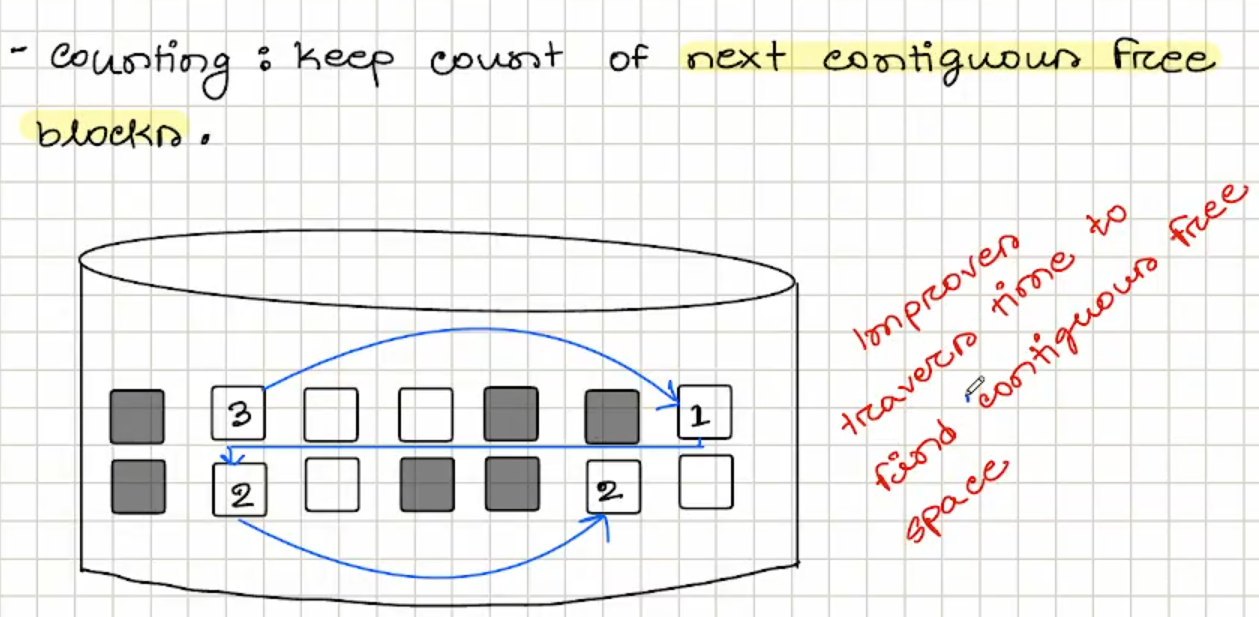 - counting : keep count of next contiguous free
blocks.
3
1
2
2
Improves
travers time to
find contiguous free
space